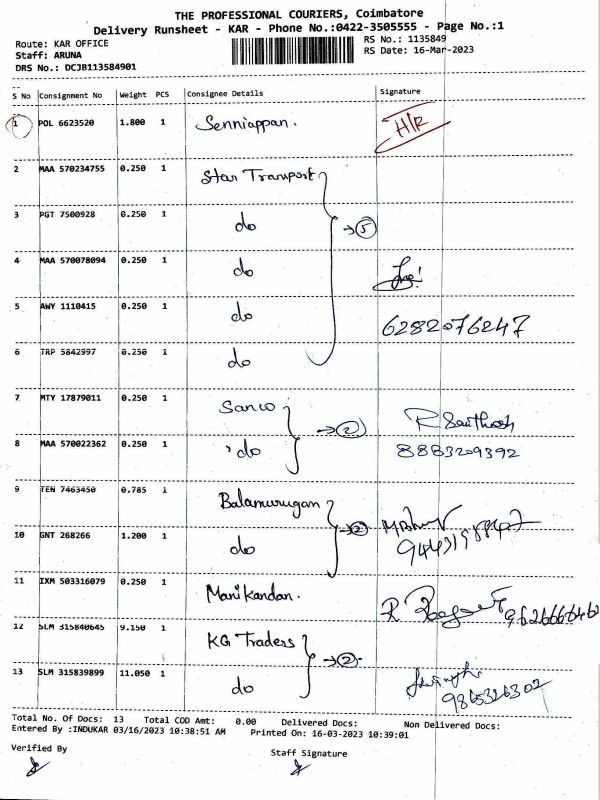 THE PROFESSIONAL COURIERS, Coimbatore
Delivery Runsheet - KAR - Phone No.:0422-3505555 - Page No.:1
Route: KAR OFFICE
Staff: ARUNA
DRS No.: DCJB113584901
RS No.: 1135849
RS Date: 16-Mar-2023
S No Consignment No Weight PCS Consignee Details Signature
1 POL 6623520 1.800 1 Senniappan. H/R
2 MAA 570234755 0.250 1 Star Transport
3 PGT 7500928 0.250 1 do → 5
4 MAA 570078094 0.250 1 do
5 AWY 1110415 0.250 1 do 6282076247
6 TRP 5842997 0.250 1 do
7 MTY 17879011 0.250 1 Sanco → 2 R Santhosh
8 MAA 570022362 0.250 1 do 8883209392
9 TEN 7463450 0.785 1 Balamurugan → 2
10 GNT 268266 1.200 1 do
11 IXM 503316079 0.250 1 Manikandan. R
12 SLM 315840645 9.150 1 KG Traders → 2
13 SLM 315839899 11.050 1 do 9865326302
Total No. Of Docs: 13 Total COD Amt: 0.00 Delivered Docs: Non Delivered Docs:
Entered By :INDUKAR 03/16/2023 10:38:51 AM Printed On: 16-03-2023 10:39:01
Verified By Staff Signature